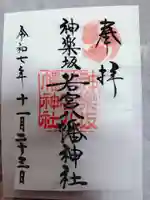 奉拝
神楽坂若宮八幡神社
令和七年十一月二十三日